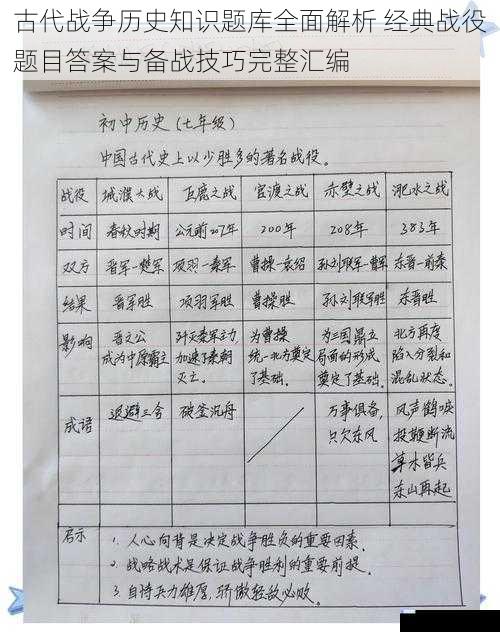 古代战争历史知识题库全面解析 经典战役
题目答案与备战技巧完整汇编
初中历史(七年级)
中国古代史上以少胜多的著名战役。
战役 城濮大战 巨鹿之战 官渡之战 赤壁之战 淝水之战
时间 春秋时期 公元前207年 200年 208年 383年
双方 晋军—楚军 项羽—秦军 曹操—袁绍 孙刘联军—曹军 东晋—前秦
结果 晋军胜 项羽军胜 曹操胜 孙刘联军胜 东晋胜
影响 晋文公 歼灭秦军主力 为曹操 为三国鼎立 北方再度
成为中原霸主 加速了秦朝 统一北方奠定 局面的形成 陷入分裂和
灭亡。 了基础。 奠定了基础。 混乱状态。
成语 退避三舍 破釜沉舟 万事俱备, 风声鹤唳
只欠东风 投鞭断流
草木皆兵
东山再起
启示 1. 人心向背是决定战争胜负的重要因素。
2. 战略战术是保证战争胜利的重要前提。
3. 自恃兵力雄厚,骄傲轻敌必败。